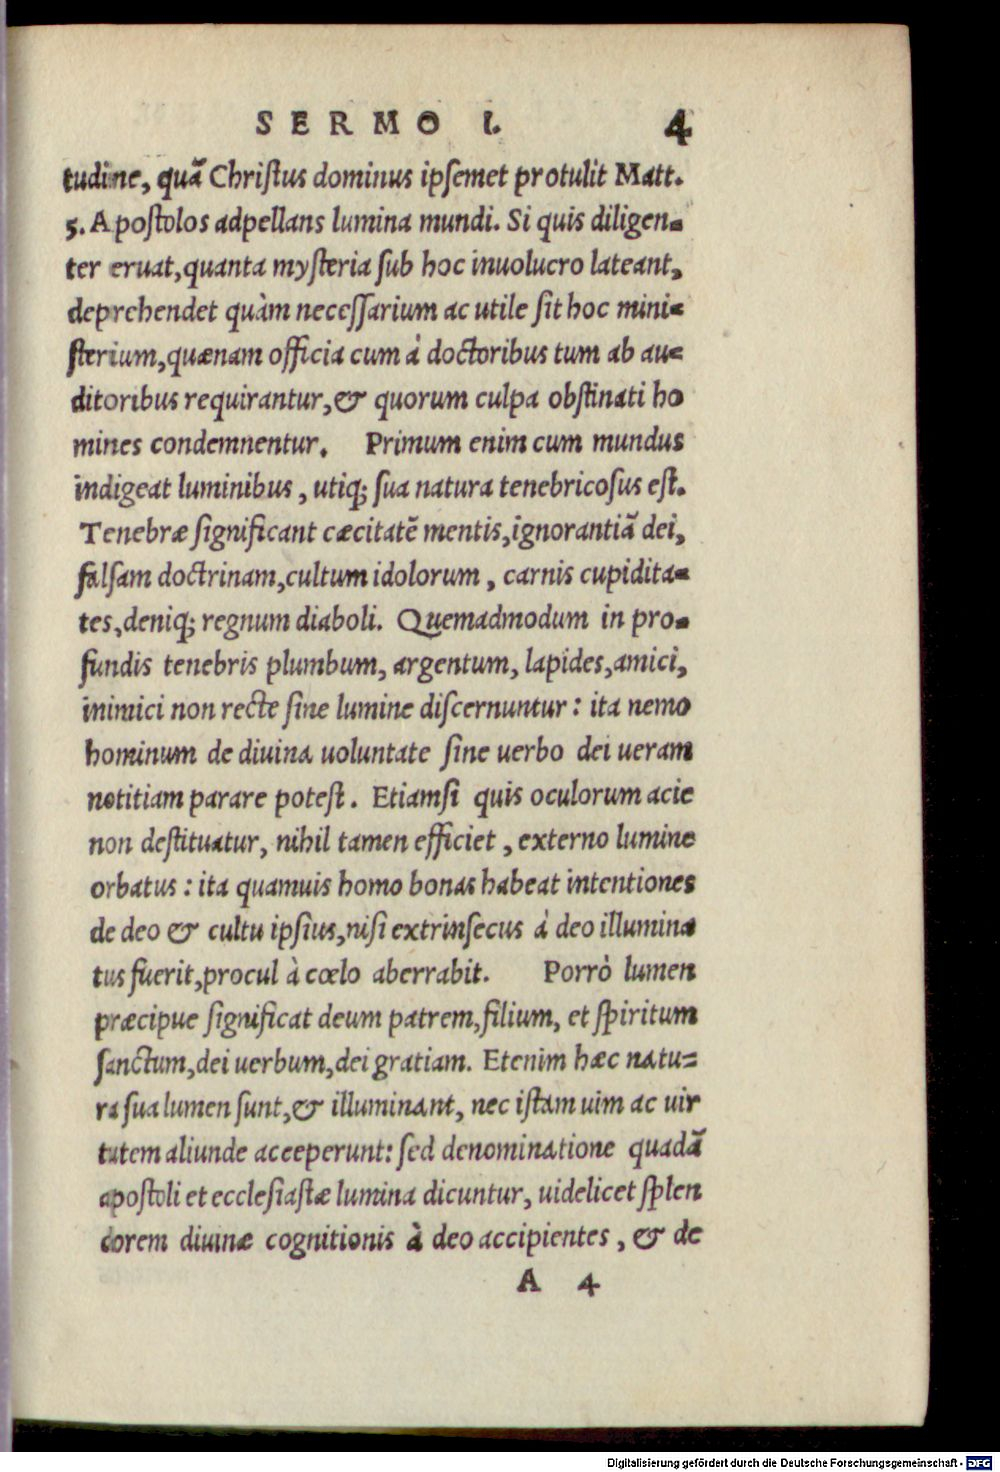 SERMO I. 4
tudine, quã Chriſtus dominus ipſemet protulit Matt.
5. Apoſtolos adpellans lumina mundi. Si quis diligen-
ter eruat, quanta myſteria ſub hoc inuolucro lateant,
deprehendet quàm neceſſarium ac utile ſit hoc mini-
ſterium, quænam officia cum à doctoribus tum ab au-
ditoribus requirantur, & quorum culpa obſtinati ho
mines condemnentur. Primum enim cum mundus
indigeat luminibus, utiq; ſua natura tenebricoſus eſt.
Tenebræ ſignificant cæcitatẽ mentis, ignorantiã dei,
falſam doctrinam, cultum idolorum, carnis cupidita-
tes, deniq; regnum diaboli. Quemadmodum in pro-
fundis tenebris plumbum, argentum, lapides, amici,
inimici non recte ſine lumine diſcernuntur: ita nemo
hominum de diuina uoluntate ſine uerbo dei ueram
notitiam parare poteſt. Etiamſi quis oculorum acie
non deſtituatur, nihil tamen efficiet, externo lumine
orbatus: ita quamuis homo bonas habeat intentiones
de deo & cultu ipſius, niſi extrinſecus à deo illumina
tus fuerit, procul à cœlo aberrabit. Porrò lumen
præcipue ſignificat deum patrem, filium, et ſpiritum
ſanctum, dei uerbum, dei gratiam. Etenim hæc natu-
ra ſua lumen ſunt, & illuminant, nec iſtam uim ac uir
tutem aliunde aceeperunt: ſed denominatione quadã
apoſtoli et eccleſiaſtæ lumina dicuntur, uidelicet ſplen
dorem diuinæ cognitionis à deo accipientes, & de
A 4
Digitalisierung gefördert durch die Deutsche Forschungsgemeinschaft - DFG